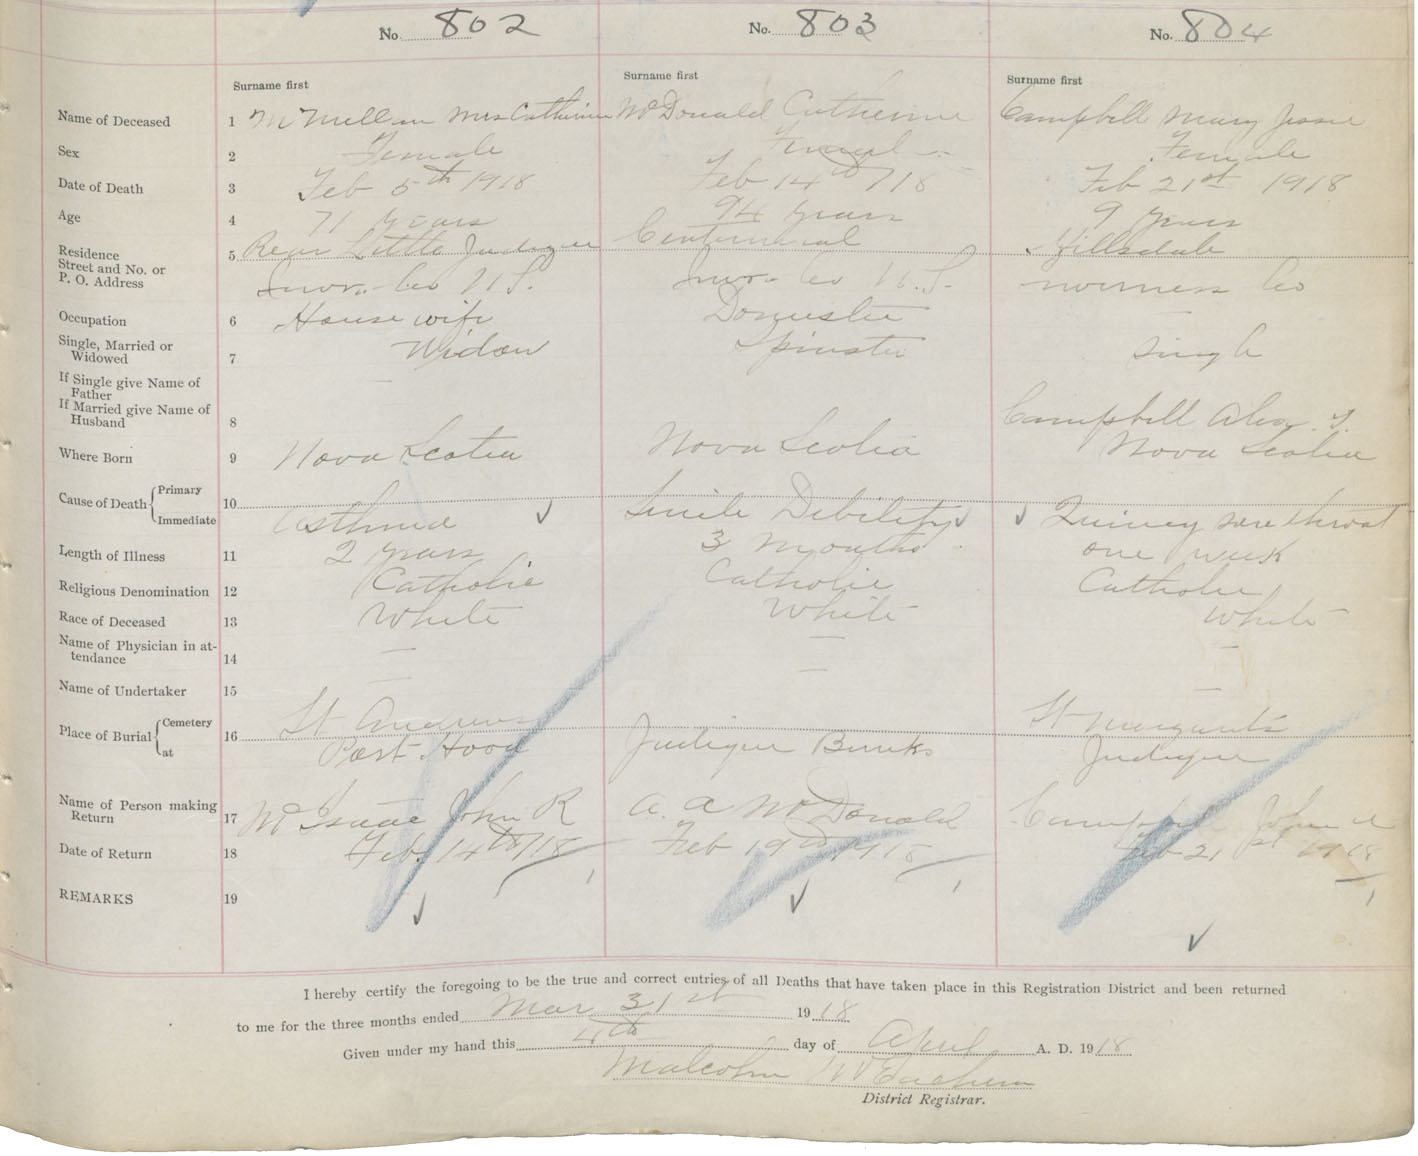 No. 802 No. 803 No. 804
Surname first Surname first Surname first
Name of Deceased 1 McMillan Mrs Catherine McDonald Catherine Campbell Mary Jessie
Sex 2 Female Female Female
Date of Death 3 Feb 5th 1918 Feb 14th /18 Feb 21st 1918
Age 4 71 years 94 years 9 years
Residence Street and No. or P. O. Address 5 Rear Little Judique Centennial Hillsdale
Invr. Co N.S. Invr. Co N.S. Inverness Co
Occupation 6 House wife Domestic -
Single, Married or Widowed 7 Widow Spinster Single
If Single give Name of Father
If Married give Name of Husband 8 - Campbell Alex. J.
Where Born 9 Nova Scotia Nova Scotia Nova Scotia
Cause of Death { Primary 10
Immediate Asthma Senile Debility Quincy sore throat
Length of Illness 11 2 years 3 months one week
Religious Denomination 12 Catholic Catholic Catholic
Race of Deceased 13 White White White
Name of Physician in attendance 14 - - -
Name of Undertaker 15 - - -
Place of Burial { Cemetery 16 St Andrews St Margarets
at Port Hood Judique Banks Judique
Name of Person making Return 17 McIsaac John R A. A McDonald Campbell John A
Date of Return 18 Feb. 14th /18 Feb 19th 1918 Feb 21st 1918
REMARKS 19
I hereby certify the foregoing to be the true and correct entries of all Deaths that have taken place in this Registration District and been returned
to me for the three months ended Mar 31st 1918
Given under my hand this 4th day of April A. D. 1918
Malcolm McEachern
District Registrar.